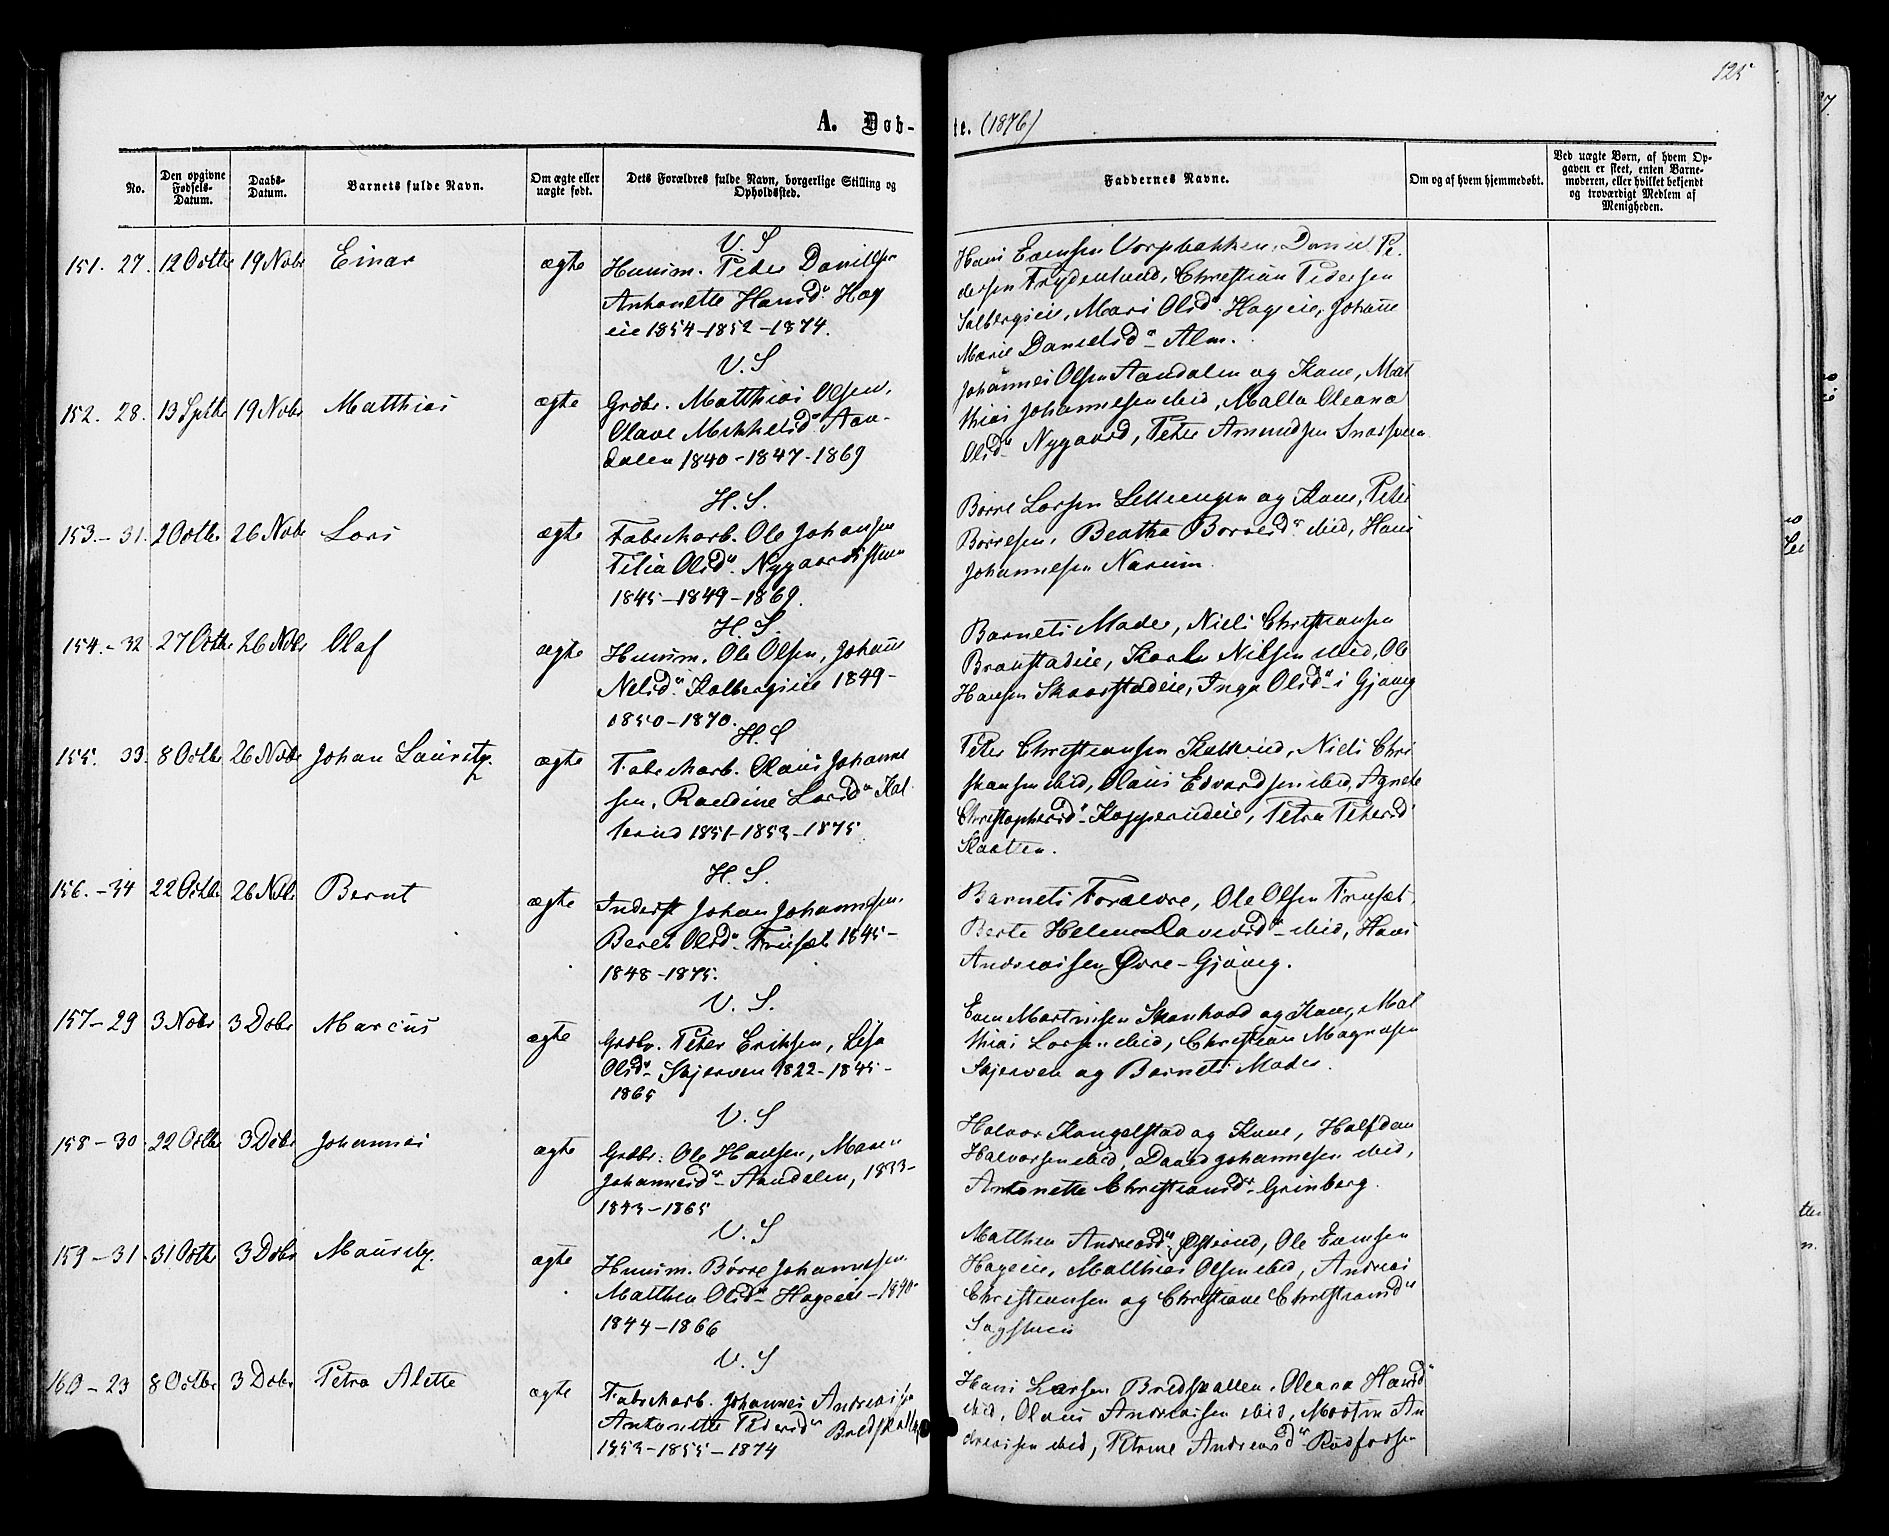 125
A. Døb-
te. (1876)
No.
Den opgivne Fødsels-Datum.
Daabs-Datum.
Barnets fulde Navn.
Om ægte eller uægte født.
Dets Forældres fulde Navn, borgerlige Stilling og Opholdssted.
Faddernes Navne.
Om og af hvem hjemmedøbt.
Ved uægte Børn, af hvem Opgaven er skeet, enten Barnemoderen, eller hvilket bekjendt og troværdigt Medlem af Menigheden.
V. S
151. 27. 12 Octbr 19 Nobr Einar ægte Huusm. Peder Danielsen
Antonette Hansdr. Hag
eie 1854-1852-1874.
Hans Evensen Vorpbakken, Daniel Pe-
dersen Frydenlund, Christian Pedersen
Solbergseie, Mari Olsdr. Hageeie, Johanne
Marie Danielsdr- Alm.
V. S
152. 28. 13 Septbr 19 Nobr Matthias ægte Grdbr. Matthias Olsen,
Olave Mikkelsdr Aan-
dalen 1840-1847-1869
Johannes Olsen Aandalen og Kone, Mat
thias Johannesen ibid, Malta Oleana
Olsdr Nygaard, Peter Amundsen Snarsveen
H. S.
153.-31. 2 Octbr 26 Nobr Lars ægte Fabrikarb. Ole Johansen
Tilia Olsdr. Nygaardsstuen
1845-1849-1869.
Børre Larsen Letteengen og Kone, Peter
Børresen, Beatha Børresdr. ibid, Hans
Johannesen Narum.
H. S.
154.-32 27 Octbr 26 Nobr Olaf ægte Huusm. Ole Olsen, Johanne
Nelsdr. Kolbergseie 1849-
1850-1870.
Barnets Moder, Niels Christiansen
Branstadeie, Karln Nilsen ibid, Ole
Hansen Skaarstadeie, Inga Olsdr- i Gjøvig
H. S
155. 33. 8 Octbr 26 Nobr Johan Lauritz. ægte Fabrikarb. Olaus Johanne
sen, Randine Larsdr Kal
lerud 1851-1853-1875.
Peter Christiansen Kallerud, Niels Chri
stiansen ibid, Olaus Edvardsen ibid, Agnete
Christophersdr- Kopperudeie, Petra Petersd
Slaatten.
H. S.
156.-34 22 Octbr 26 Nobr Bernt ægte Inderst Johan Johannesen,
Beret Olsdr. Fruesæt 1845-
1848-1875.
Barnets Forældre, Ole Olsen Fruesæt,
Berte Helene Davidsdr- ibid, Hans
Andreassen Øvre-Gjøvig.
V. S.
157-29 3 Nobr 3 Debr Marcus ægte Grdbr. Peter Eriksen, Lisa
Olsdr- Skjerven 1822-1845-
1865
Even Martinsen Skonhovd og Kone, Mat
thias Larsen ibid, Christian Magnusen
Skjerven og Barnets Moder.
V. S
158-30 22 Octbr 3 Debr Johannes ægte Grdbr. Ole Hansen, Maren
Johannesdr- Aandalen, 1833-
1843-1865
Halvor Kongelstad og Kone, Halfdan
Halvorsen ibid, David Johannesen ibid,
Antonette Christiansdr- Grinberg.
V. S
159-31. 31 Octbr 3 Debr Mauritz. ægte Huusm. Børre Johannesen
Matthea Olsdr- Hageeie-1840-
1844-1866
Matthea Andreasdr. Østerud, Ole Evensen
Hageeie, Matthias Olsen ibid, Andreas
Christiansen og Christiane Christiansdr
Sagstuen
V. S
160-23 8 Octbr 3 Debr Petra Alette ægte Fabrikarb. Johannes Andreassen
Antonette Pedersdr Bredskallen
1853-1855-1874
Hans Larsen Bredskallen, Oleana Hansdr
ibid, Olaus Andreassen ibid, Martin An
dreassen ibid, Petrine Andreasdr- Rødfodsen